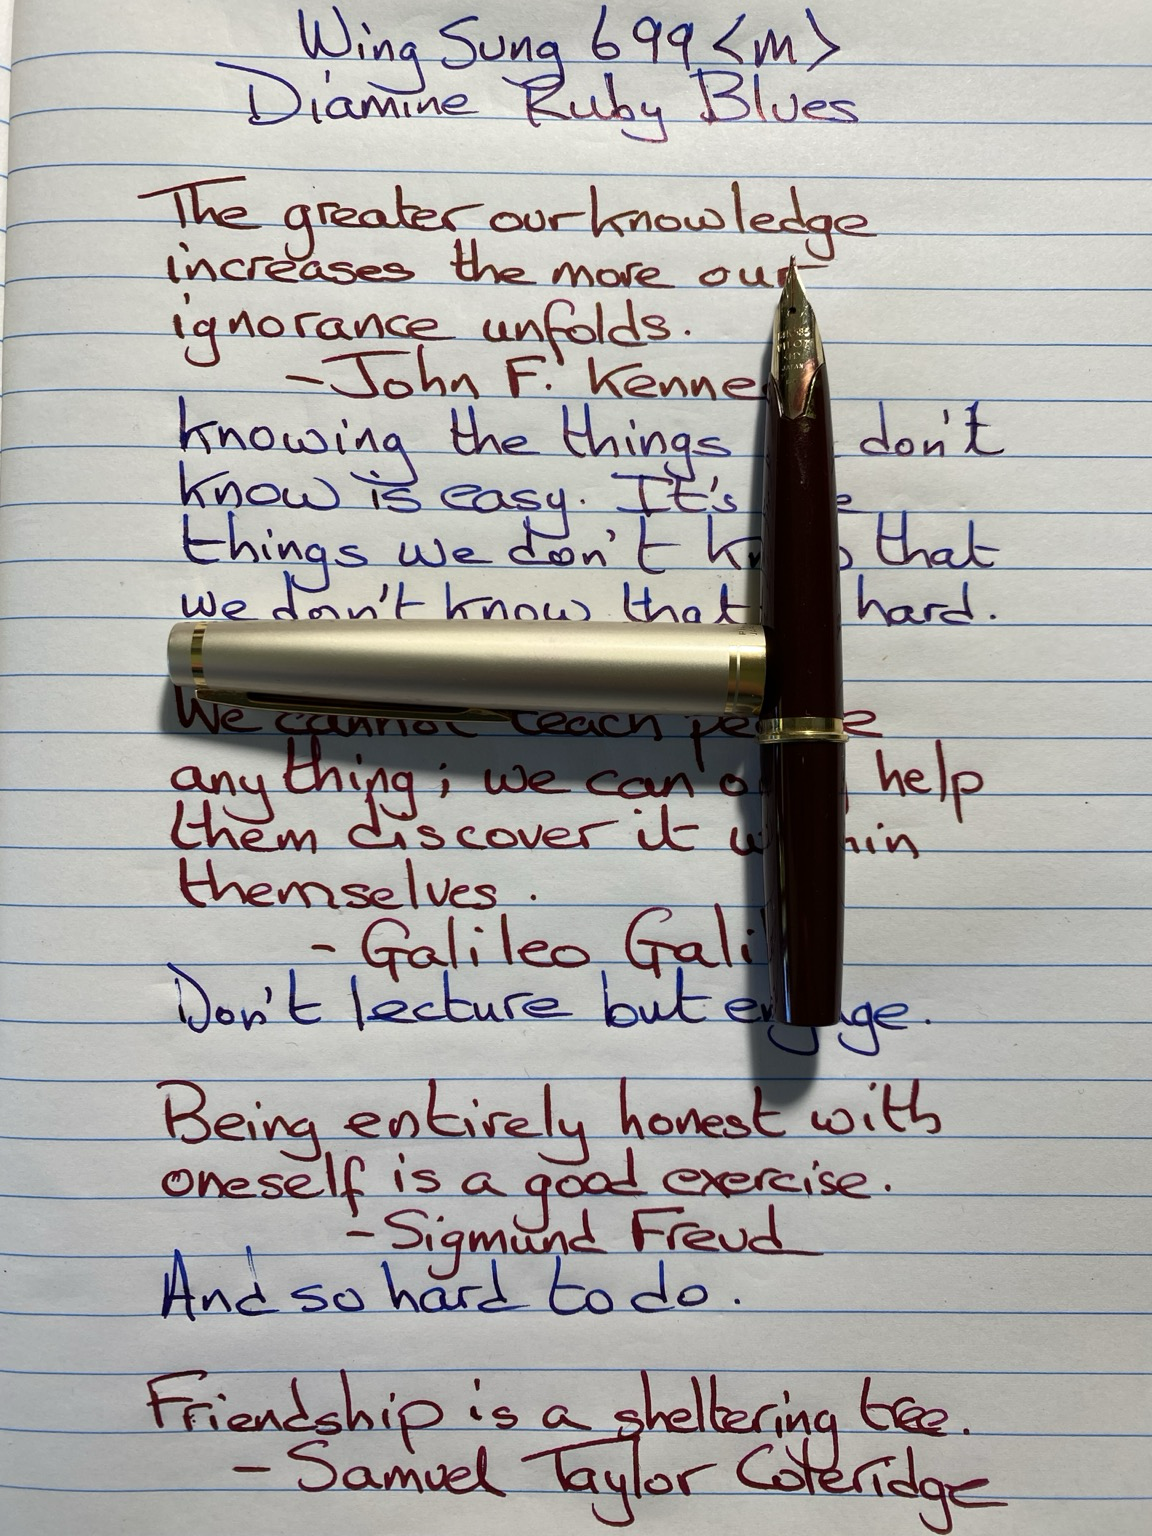 Wing Sung 699 <m>
Diamine Ruby Blues
The greater our knowledge
increases the more our
ignorance unfolds.
- John F. Kenne
knowing the things don't
know is easy. It's
things we don't that
we don't know that hard.
We cannot teach
anything; we can help
them discover it
themselves.
- Galileo Gali
Don't lecture but engage.
Being entirely honest with
oneself is a good exercise.
- Sigmund Freud
And so hard to do.
Friendship is a sheltering tree.
- Samuel Taylor Coteridge
PILOT
JAPAN